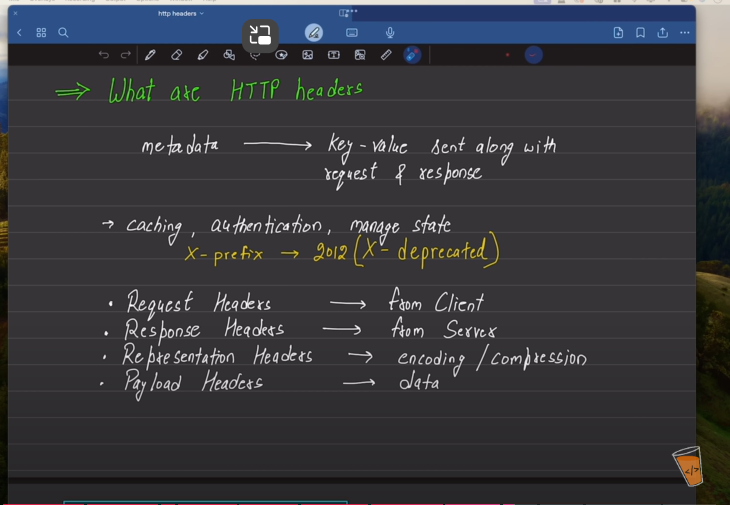 http headers
⇒ What are HTTP headers
metadata → key-value sent along with
request & response
→ caching, authentication, manage state
X-prefix → 2012 (X-deprecated)
• Request Headers → from Client
• Response Headers → from Server
• Representation Headers → encoding/compression
• Payload Headers → data
</>